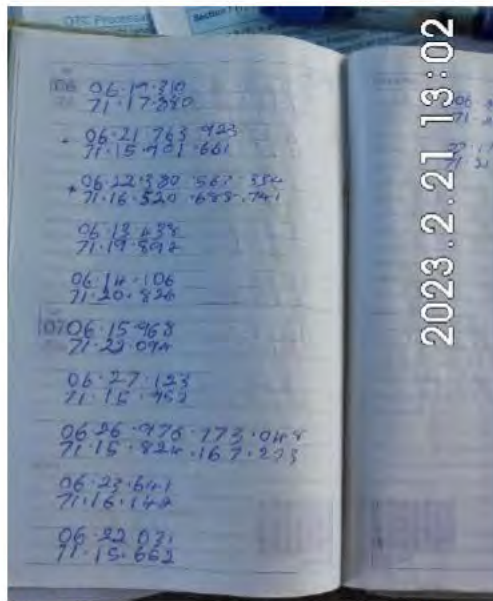 OTC Processa
Section 7
06
06.19.310
71.17.380
06.21.763.923
71.15.901.661
06.22.380.567.354
71.16.520.688.741
06.13.438
71.19.892
06.14.106
71.20.826
07
06.15.968
71.22.094
06.27.123
71.15.952
06.26.976.773.048
71.15.824.167.273
06.23.641
71.16.142
06.22.031
71.15.662
2023.2.21 13:02